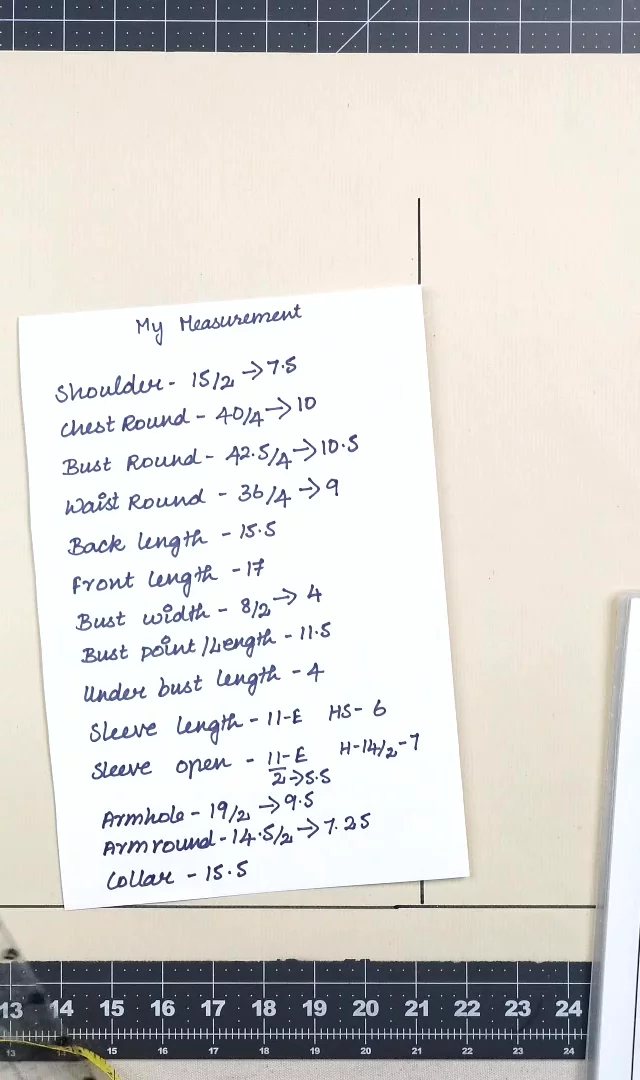 My Measurement
Shoulder - 15/2 → 7.5
Chest Round - 40/4 → 10
Bust Round - 42.5/4 → 10.5
Waist Round - 36/4 → 9
Back length - 15.5
Front length - 17
Bust width - 8/2 → 4
Bust point/Length - 11.5
Under bust length - 4
Sleeve length - 11-E HS- 6
Sleeve open - 11-E H-14/2-7
2 → 5.5
Armhole - 19/2 → 9.5
Armround - 14.5/2 → 7.25
Collar - 15.5
13 14 15 16 17 18 19 20 21 22 23 24
13 14 15 16 17 18 19 20 21 22 23 24